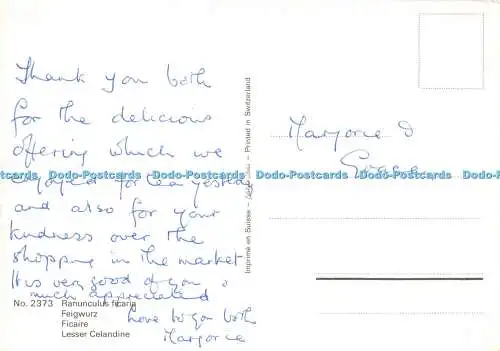 Thank you both
for the delicious
offering which we
enjoyed for tea yesterday
and also for your
kindness over the
shopping in the market
It is very good of you &
much appreciated
Love to you both
Marjorie
No. 2373 Ranunculus ficaria
Feigwurz
Ficaire
Lesser Celandine
Imprimé en Suisse – Printed in Switzerland
Marjorie &
Dodo-Postcards Dodo-Postcards Dodo-Postcards Dodo-Postcards Dodo-Postcards
Dodo-Postcards Dodo-Postcards Dodo-Postcards Dodo-Postcards Dodo-Postcards